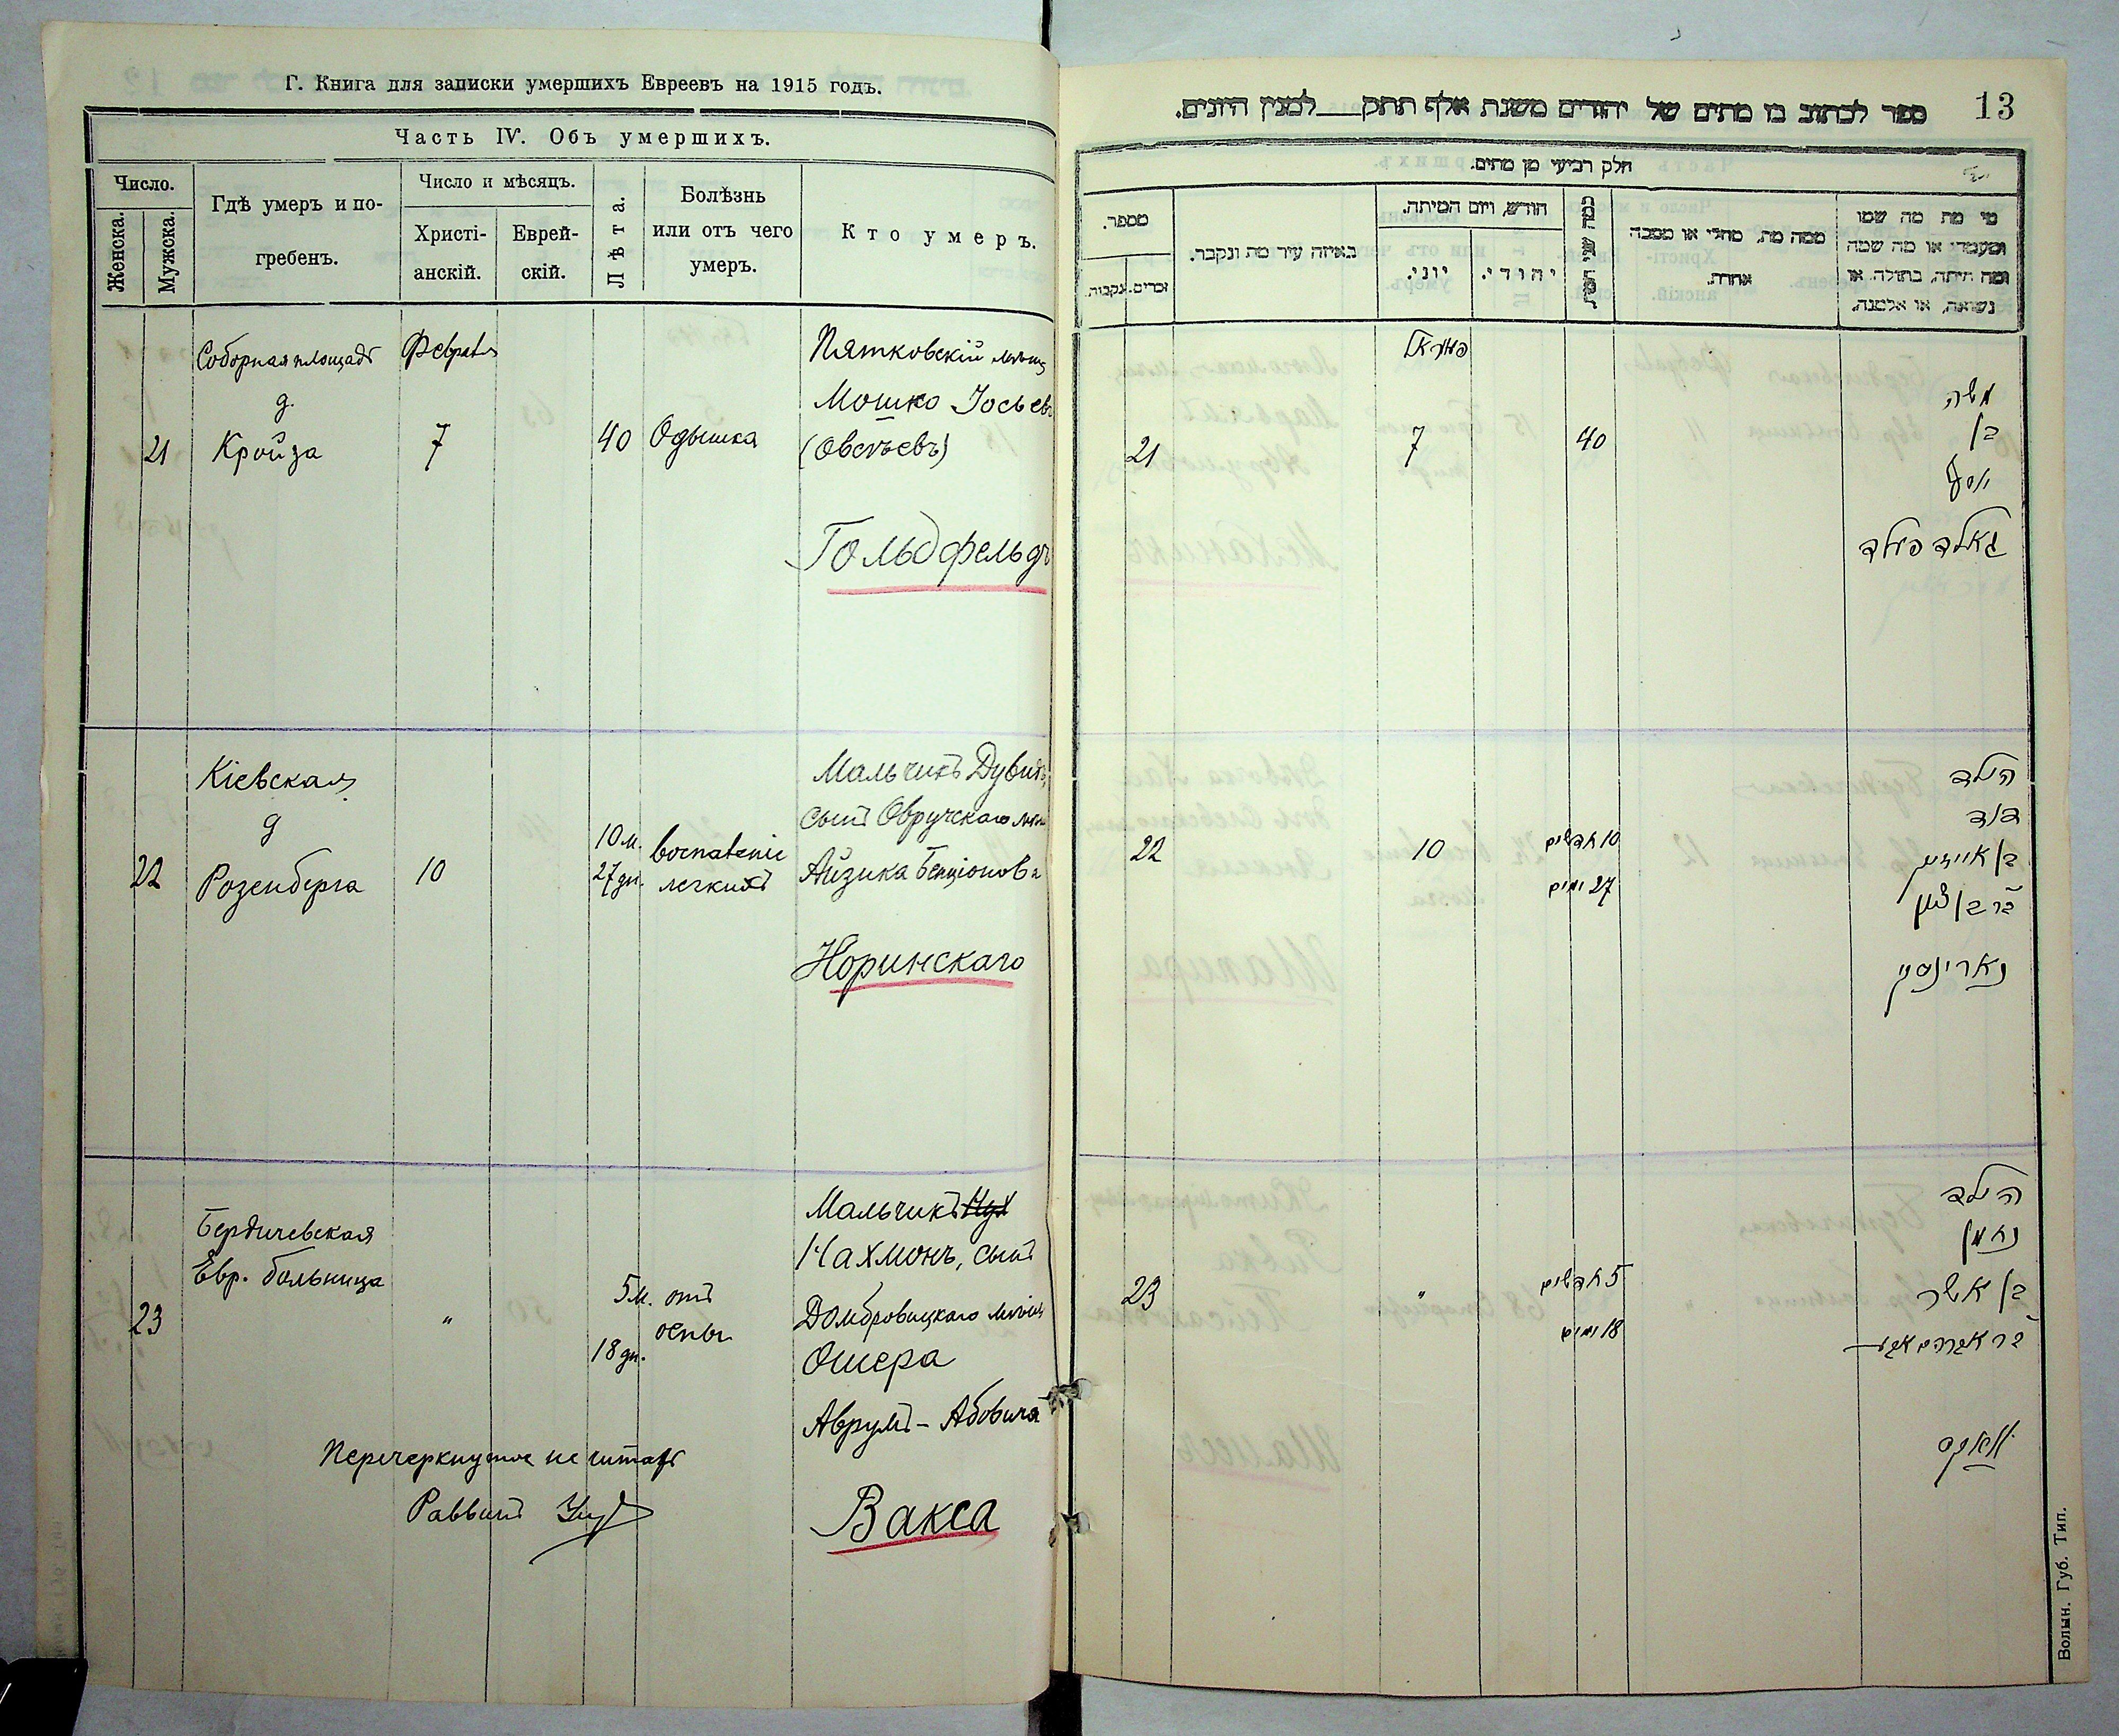 Г. Книга для записки умершихъ Евреевъ на 1915 годъ.
Часть IV. Объ умершихъ.
Число.
Женска.
Мужска.
Гдѣ умеръ и по-
гребенъ.
Число и мѣсяцъ.
Христі-
анскій.
Еврей-
скій.
Лѣта.
Болѣзнь
или отъ чего
умеръ.
Кто умеръ.
21
Соборная площадь
д.
Кройза
Февраля
7
40
Одышка
Пятковскій мѣщ
Мошко Іосьев
(Овсѣевъ)
Гольдфельдъ
22
Кіевская
д
Розенберга
10
10 м.
27 дн.
воспаленіе
легкихъ
Мальчикъ Дувидъ,
сынъ Овручскаго мѣщ
Айзика Бенціонова
Норинскаго
23
Бердичевская
Евр. больница
"
5 м.
18 дн.
отъ
оспы
Мальчикъ Нух
Нахмонъ, сынъ
Домбровицкаго мѣщ
Ошера
Аврумъ-Абовича
Вакса
Перечеркнутое не читать
Раввинъ
ספר לכתוב בו מתים של יהודים משנת אלף תתק___למנין היונים.
13
חלק רביעי מן מתים.
מי מת מה שמו
ומעמדו או מה שמה
ומה היתה, בתולה או
נשואה, או אלמנה.
ממה מת, מחלי או מסבה
אחרת.
כמה שני חייו.
חודש, ויום המיתה.
יהודי.
יוני.
באיזה עיר מת ונקבר.
מספר.
זכרים.
נקבות.
משה
בן
יוסף
גאלדפעלד
40
פעוראל
7
21
הילד
דוד
בן אייזיק
בר בן ציון
נארינסקי
10 חדשים
27 ימים
10
22
הילד
נחמן
בן אשר
בר אברהם אבא
וואקס
5 חדשים
18 ימים
"
23
Волын. Губ. Тип.